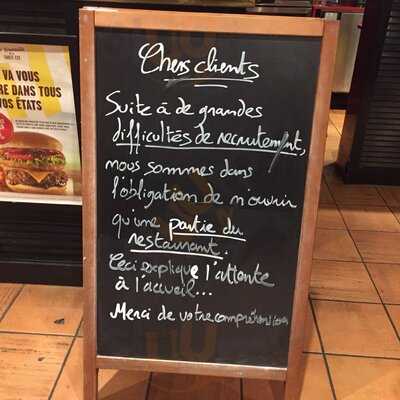 VA VOUS
RE DANS TOUS
VOS ÉTATS
Chers clients
Suite à de grandes
difficultés de recrutement,
nous sommes dans
l'obligation de n'ouvrir
qu'une partie du
restaurant.
Ceci explique l'attente
à l'accueil...
Merci de votre compréhension